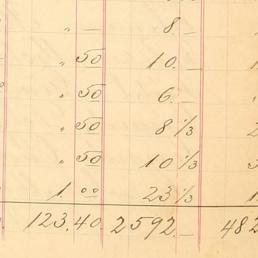 " — 8 —
" 50 10. —
" 50 6. —
" 50 8 1/3
" 50 10 1/3
1. 00 23 1/3
123. 40. 2592. — 482